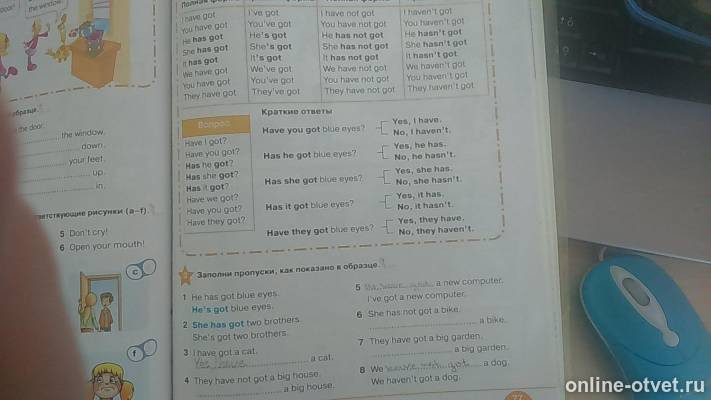 door!
the window.
Полная форма
I have got
You have got
He has got
She has got
It has got
We have got
You have got
They have got
I've got
You've got
He's got
She's got
It's got
We've got
You've got
They've got
I have not got
You have not got
He has not got
She has not got
It has not got
We have not got
You have not got
They have not got
I haven't got
You haven't got
He hasn't got
She hasn't got
It hasn't got
We haven't got
You haven't got
They haven't got
образце.
the door.
the window.
down.
your feet.
up.
in.
рисунки (a–f).
5 Don't cry!
6 Open your mouth!
c
f
Вопрос
Have I got?
Have you got?
Has he got?
Has she got?
Has it got?
Have we got?
Have you got?
Have they got?
Краткие ответы
Have you got blue eyes?
Yes, I have.
No, I haven't.
Has he got blue eyes?
Yes, he has.
No, he hasn't.
Has she got blue eyes?
Yes, she has.
No, she hasn't.
Has it got blue eyes?
Yes, it has.
No, it hasn't.
Have they got blue eyes?
Yes, they have.
No, they haven't.
Заполни пропуски, как показано в образце.
1 He has got blue eyes.
He's got blue eyes.
2 She has got two brothers.
She's got two brothers.
3 I have got a cat.
a cat.
4 They have not got a big house.
a big house.
5 a new computer.
I've got a new computer.
6 She has not got a bike.
a bike.
7 They have got a big garden.
a big garden.
8 We have not got a dog.
We haven't got a dog.
77
online-otvet.ru